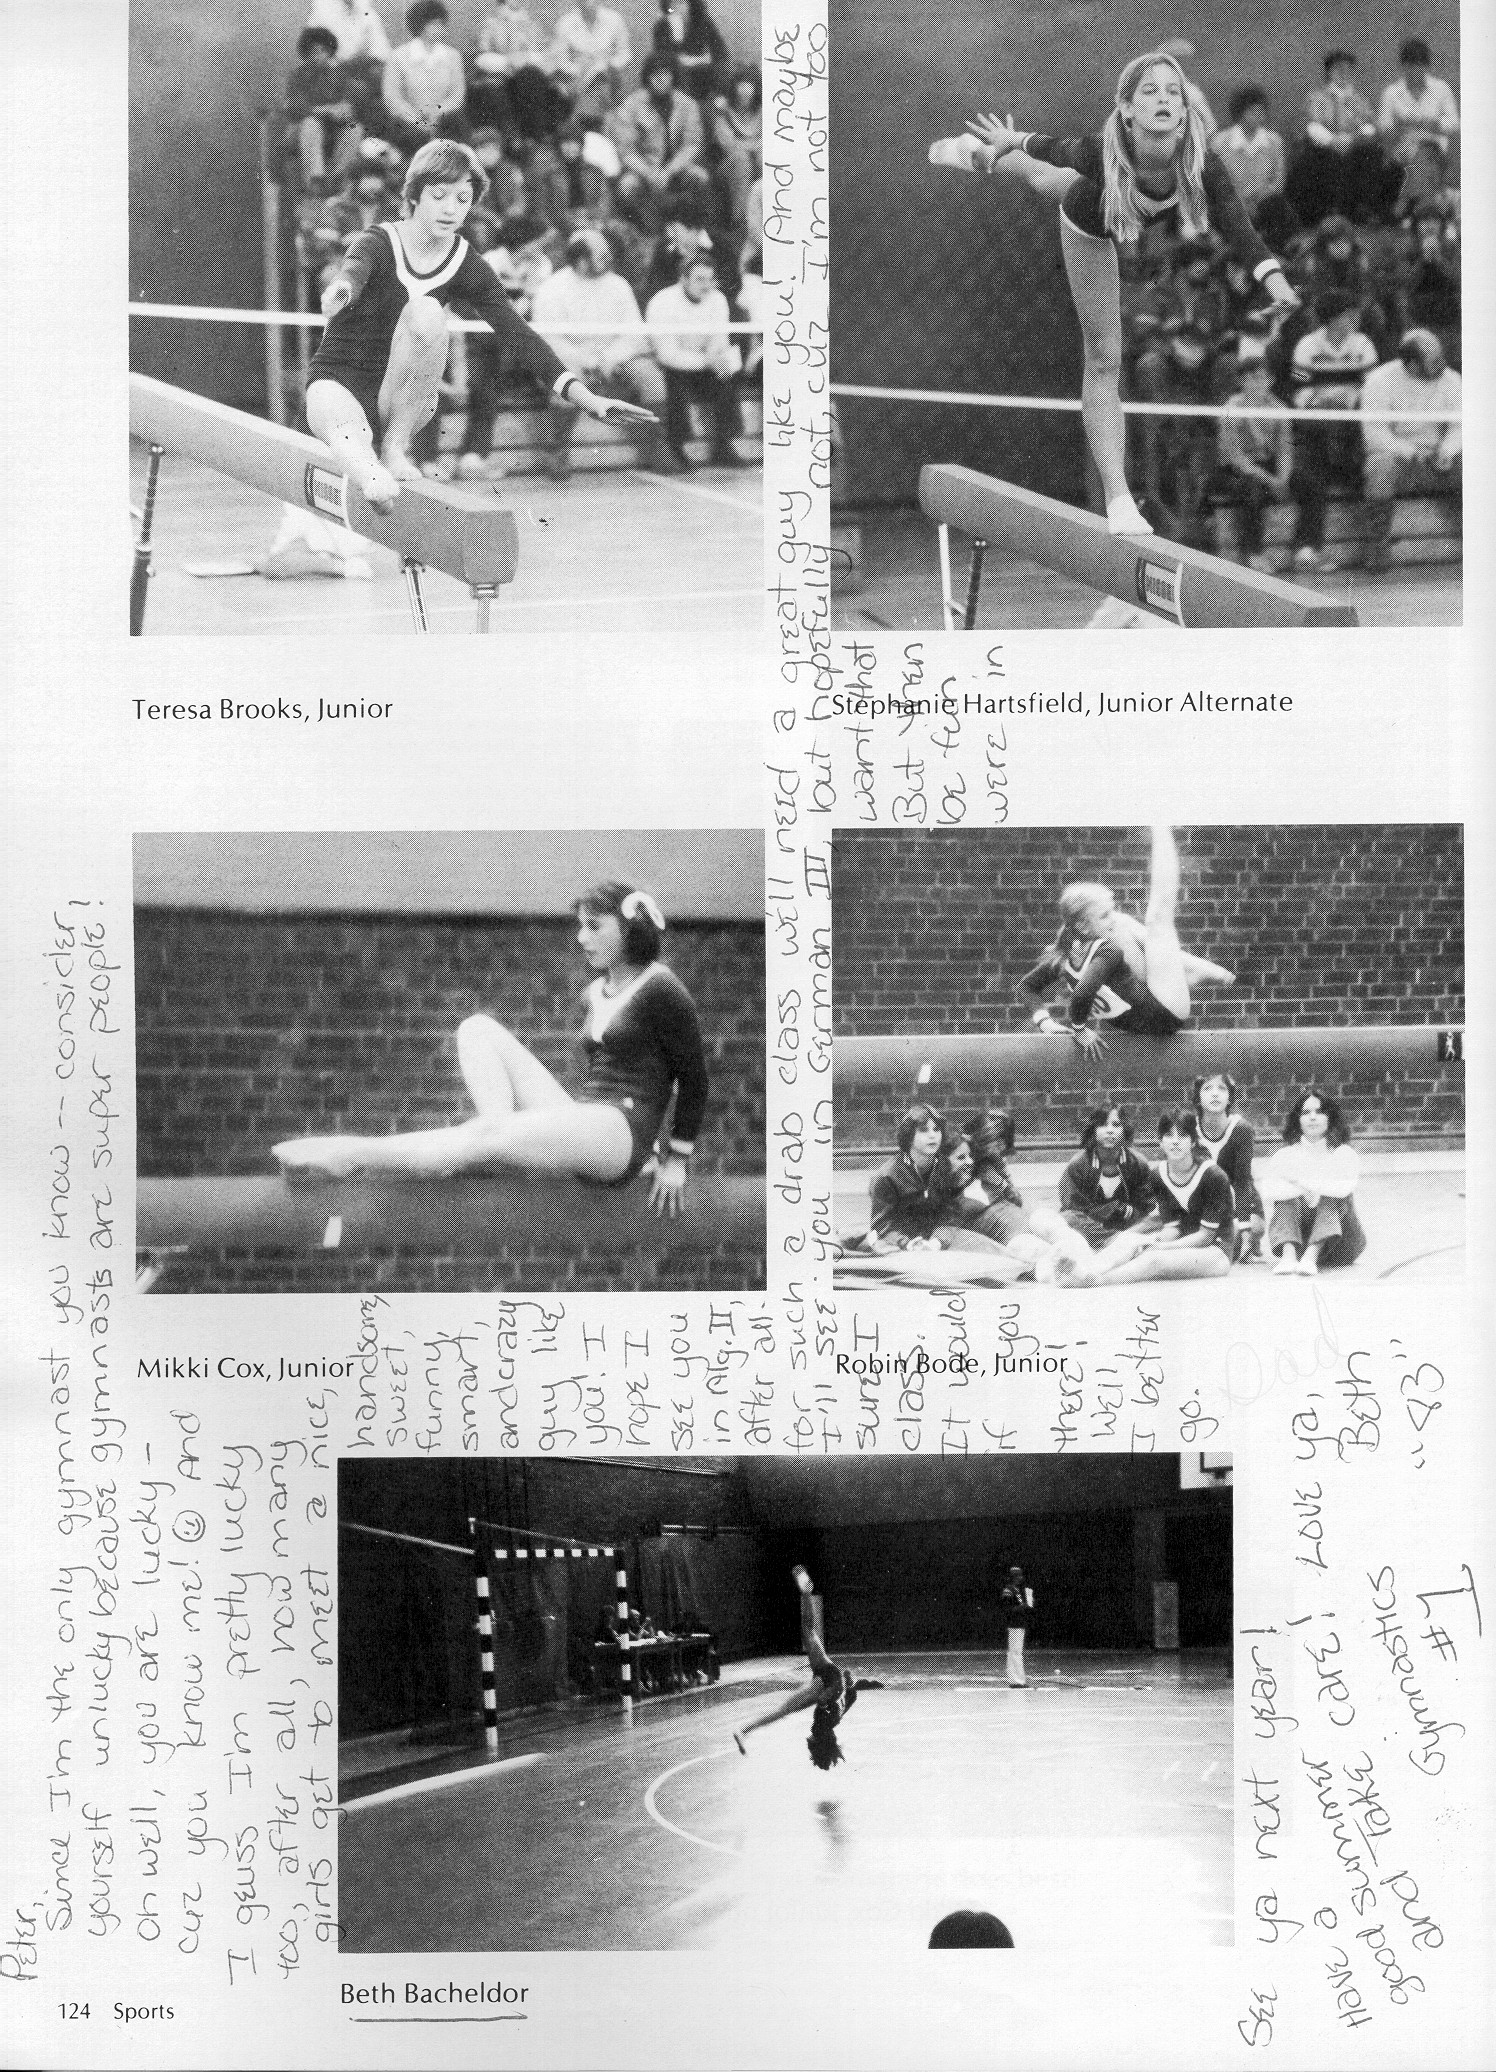 Teresa Brooks, Junior
Stephanie Hartsfield, Junior Alternate
Mikki Cox, Junior
Robin Bode, Junior
Beth Bacheldor
124 Sports
Peter,
Since I'm the only gymnast you know -- consider
yourself unlucky because gymnasts are super people!
Oh well, you are lucky -
cuz you know me! ☺ And
I geuss I'm pretty lucky
too, after all, how many
girls get to meet a nice,
handsome,
sweet,
funny,
smart,
and crazy
guy like
you! I
hope I
see you
in Alg. II,
after all.
for such a drab class we'll need a great guy like you! And maybe
I'll see you in German III, but hopefully not, cuz I'm not too
sure I want that
class. But then
It would be fun
if you were in
there!
Well
I better
go.
See ya next year!
Have a
good summer
and Take care!
Love ya,
Beth
"83"
Gymnastics
#1
Dad